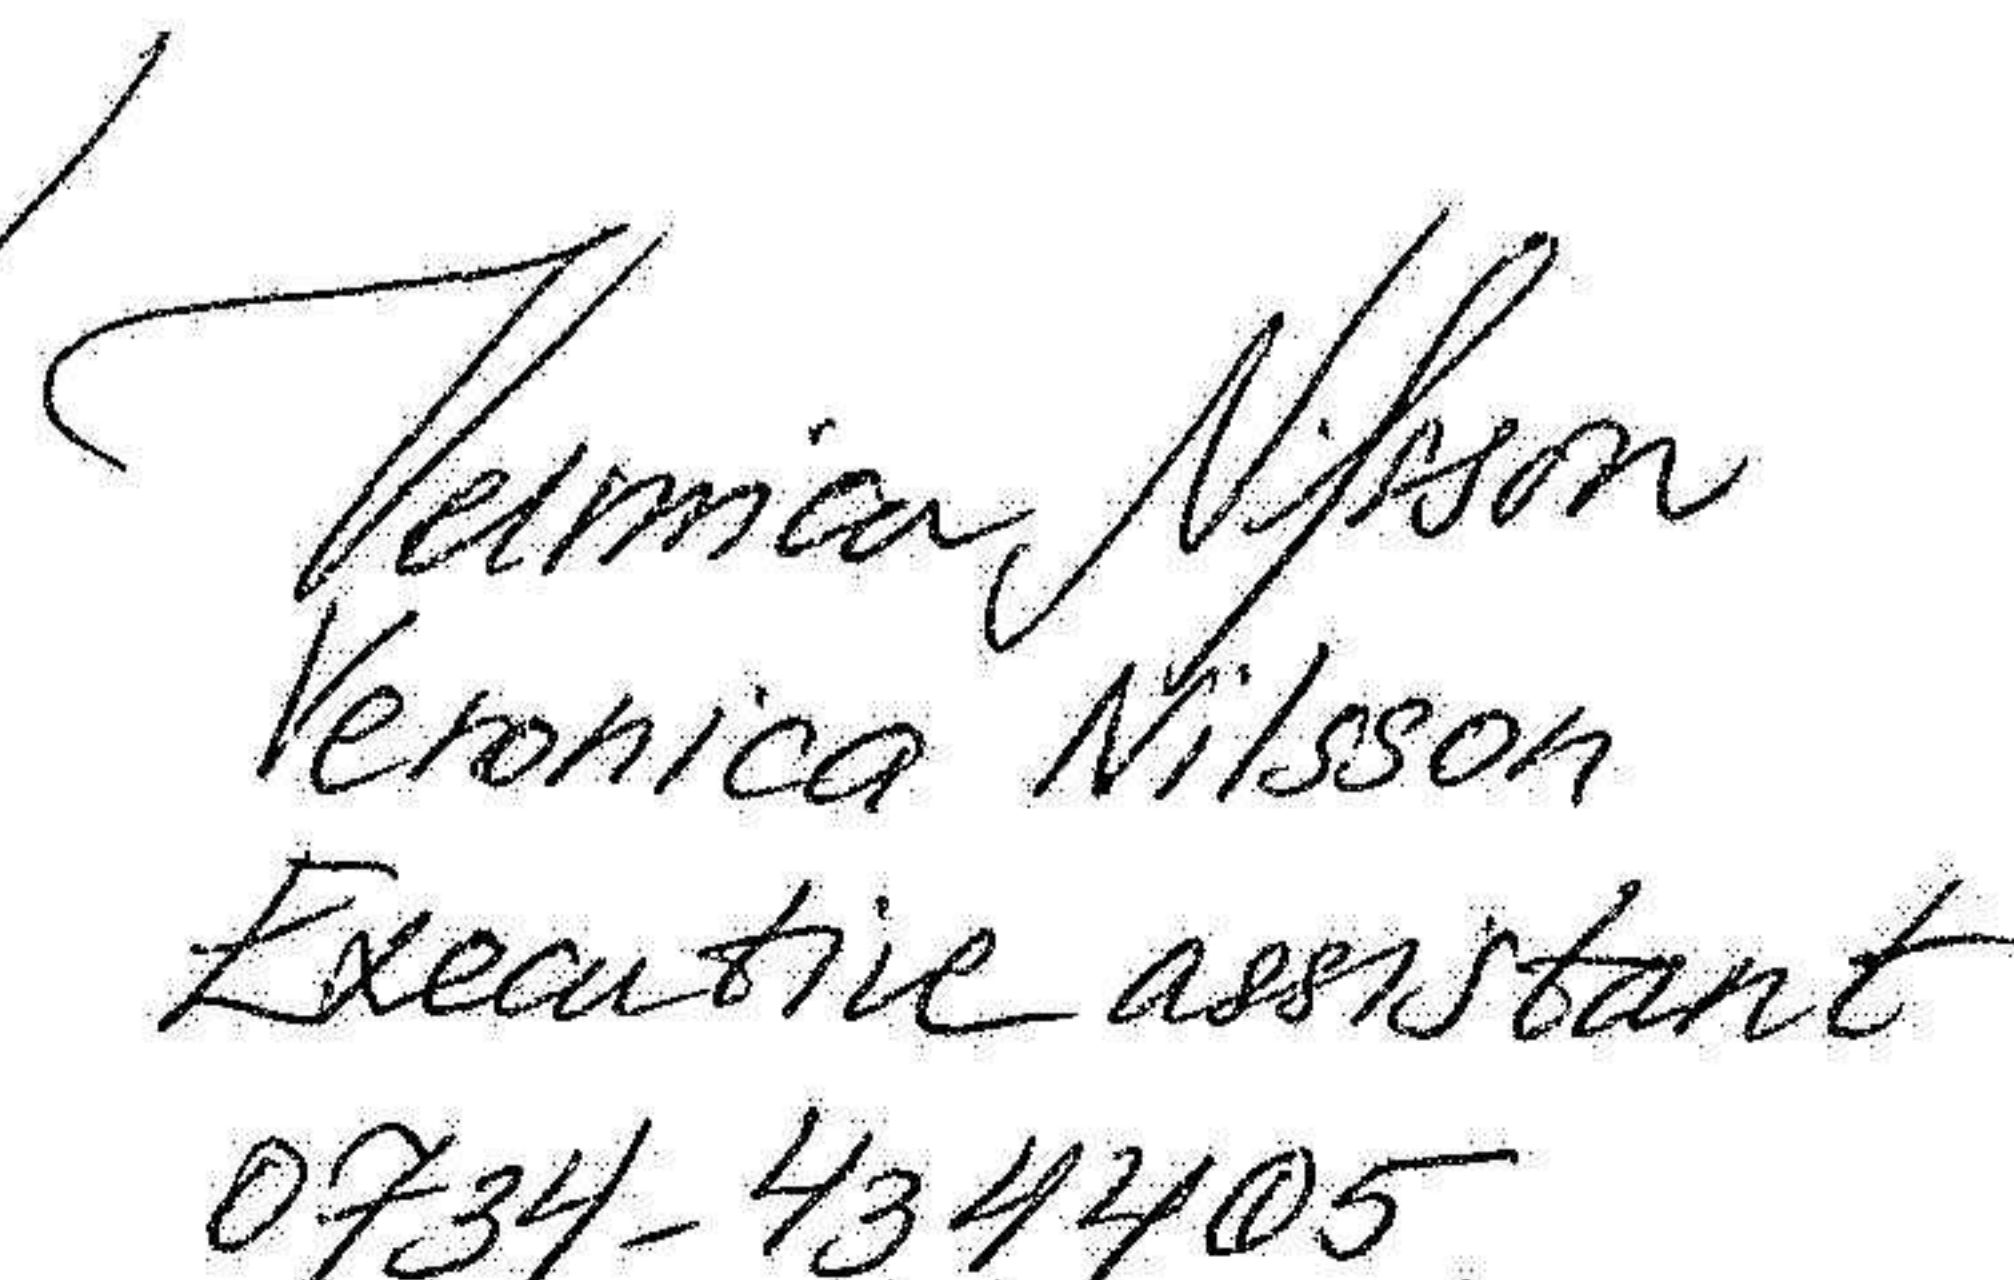 Veronica Nilsson
Veronica Nilsson
Executive assistant
0734-434405